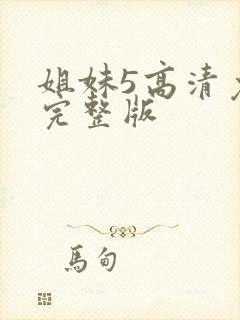 姐妹5高清
完整版
馬甸